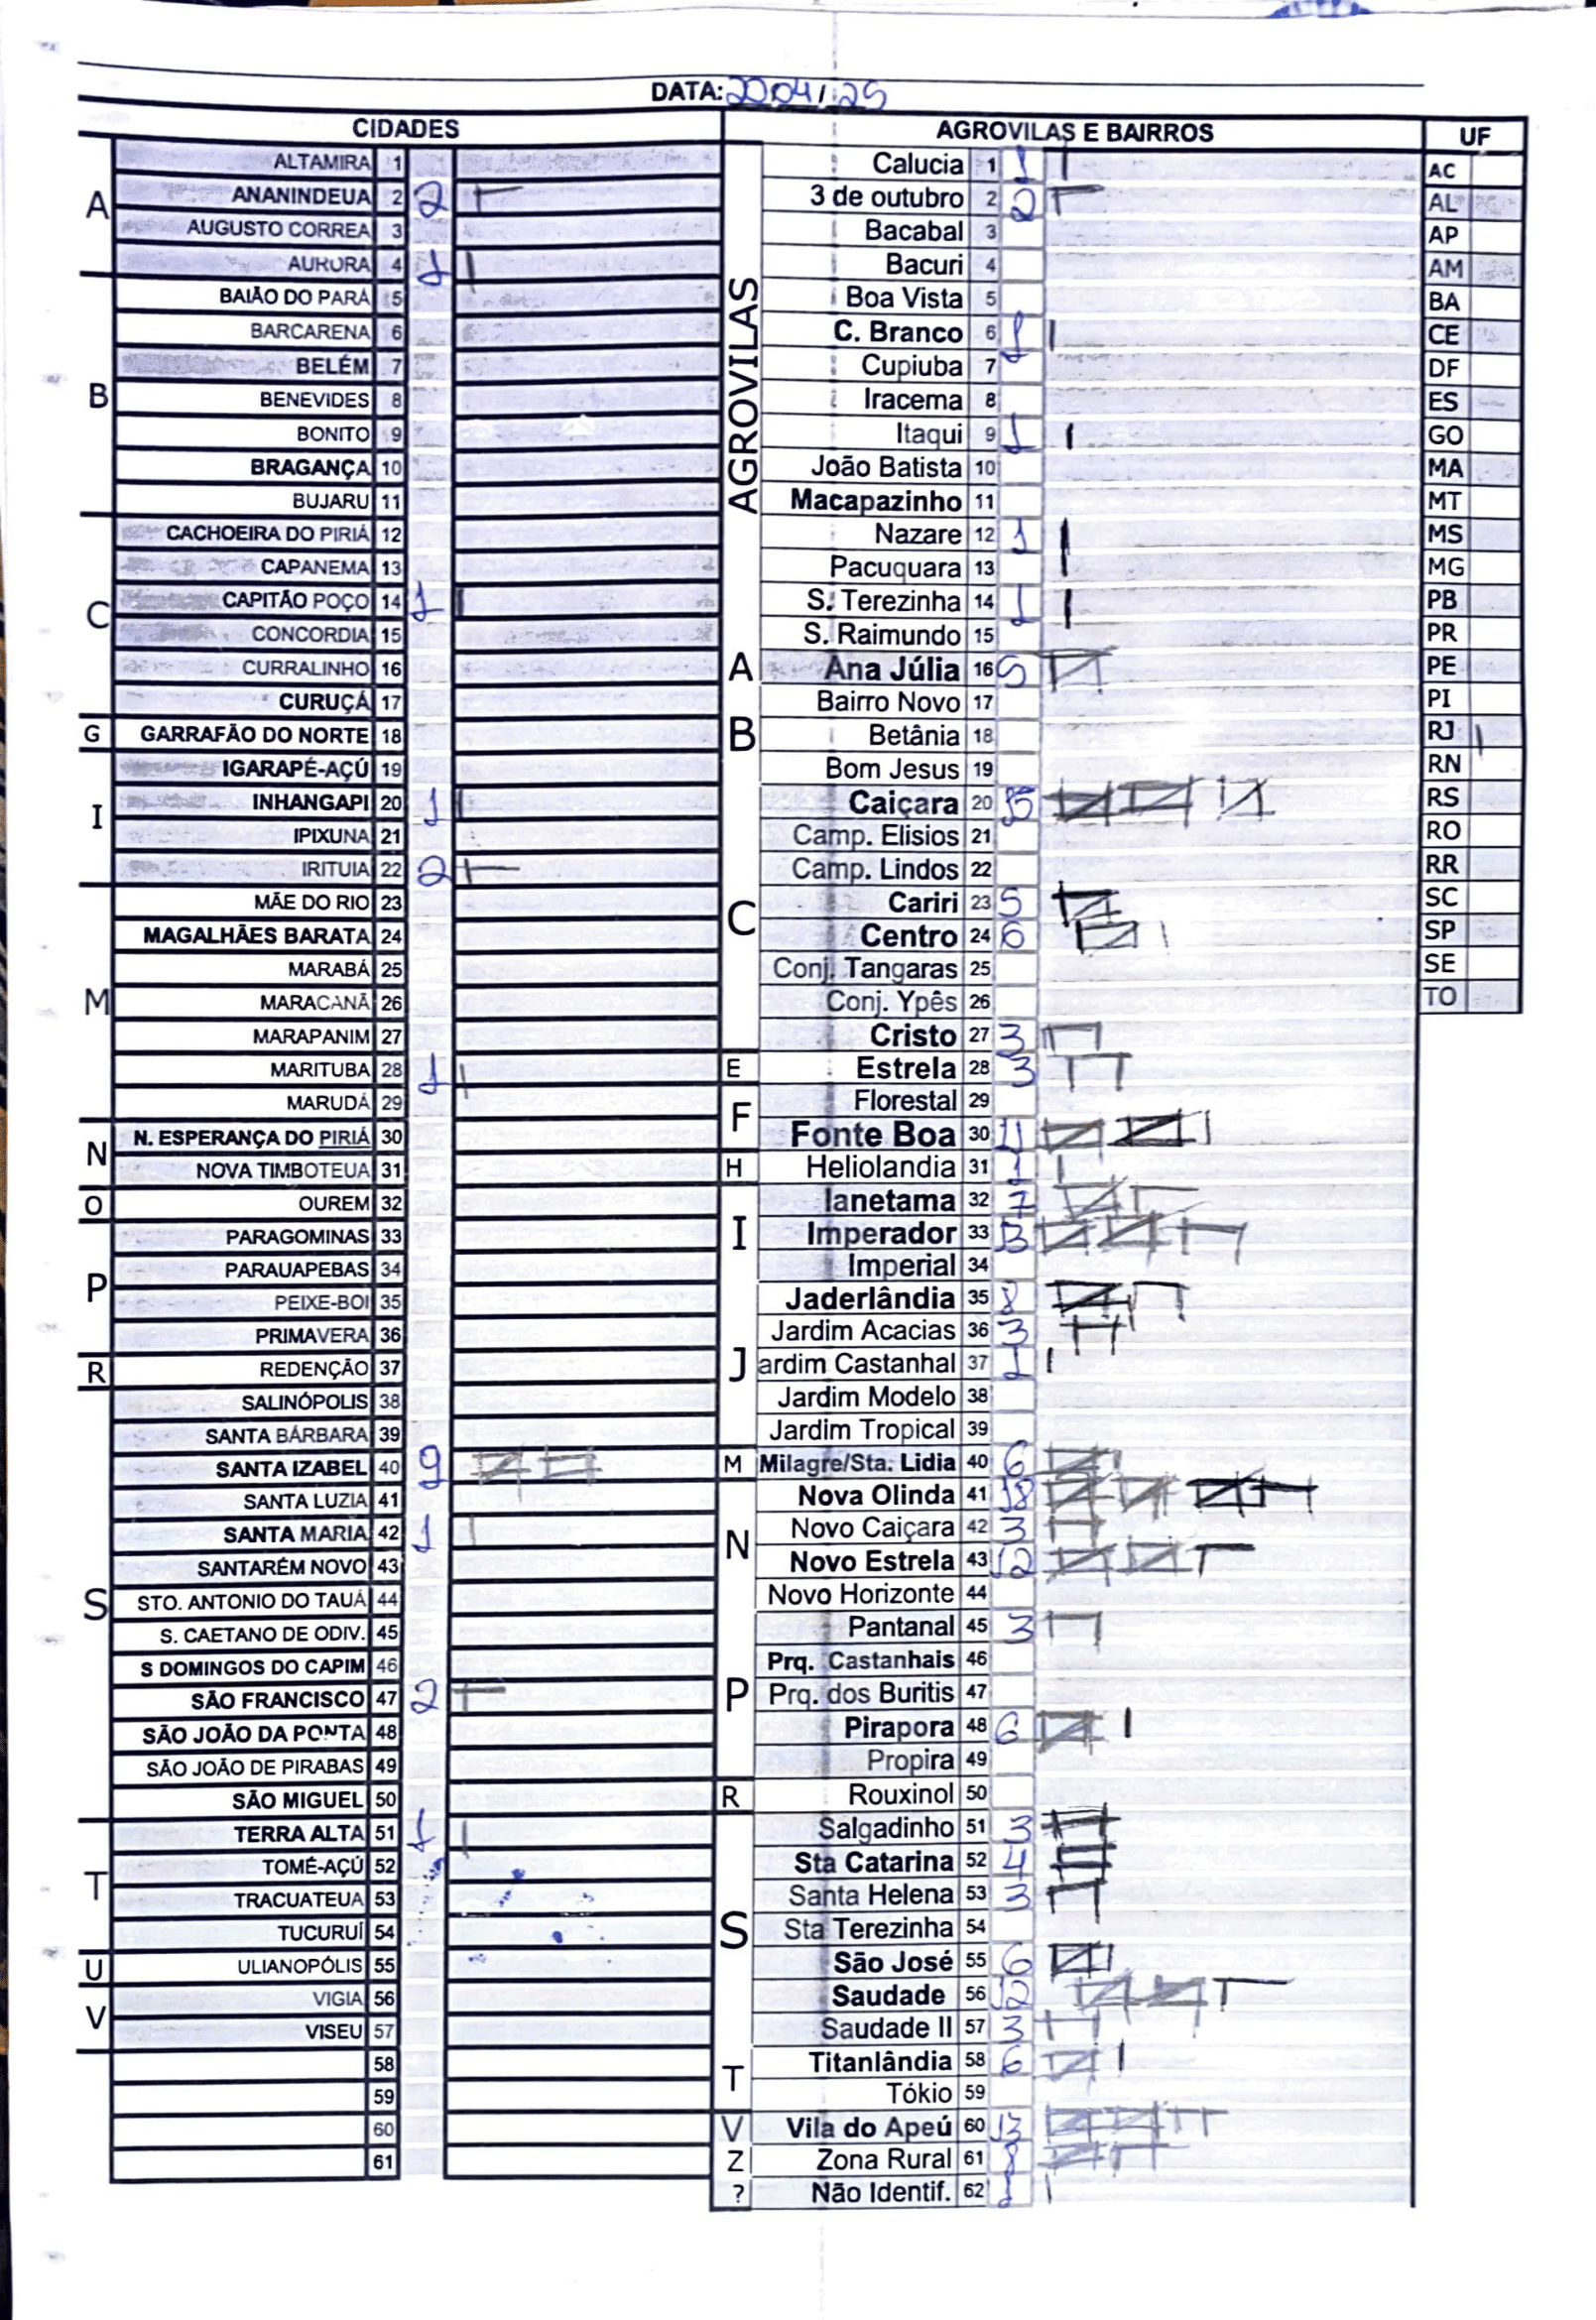 DATA: 22 04 / 25
CIDADES
A
ALTAMIRA 1
ANANINDEUA 2 2
AUGUSTO CORREA 3
AURORA 4 1
B
BAIÃO DO PARÁ 5
BARCARENA 6
BELÉM 7
BENEVIDES 8
BONITO 9
BRAGANÇA 10
BUJARU 11
C
CACHOEIRA DO PIRIÁ 12
CAPANEMA 13
CAPITÃO POÇO 14 1
CONCORDIA 15
CURRALINHO 16
CURUÇÁ 17
G
GARRAFÃO DO NORTE 18
I
IGARAPÉ-AÇÚ 19
INHANGAPI 20 1
IPIXUNA 21
IRITUIA 22 2
M
MÃE DO RIO 23
MAGALHÃES BARATA 24
MARABÁ 25
MARACANÃ 26
MARAPANIM 27
MARITUBA 28 1
MARUDÁ 29
N
N. ESPERANÇA DO PIRIÁ 30
NOVA TIMBOTEUA 31
O
OUREM 32
P
PARAGOMINAS 33
PARAUAPEBAS 34
PEIXE-BOI 35
PRIMAVERA 36
R
REDENÇÃO 37
S
SALINÓPOLIS 38
SANTA BÁRBARA 39
SANTA IZABEL 40 9
SANTA LUZIA 41
SANTA MARIA 42 1
SANTARÉM NOVO 43
STO. ANTONIO DO TAUÁ 44
S. CAETANO DE ODIV. 45
S DOMINGOS DO CAPIM 46
SÃO FRANCISCO 47 2
SÃO JOÃO DA PONTA 48
SÃO JOÃO DE PIRABAS 49
SÃO MIGUEL 50
T
TERRA ALTA 51 1
TOMÉ-AÇÚ 52
TRACUATEUA 53
TUCURUÍ 54
U
ULIANOPÓLIS 55
V
VIGIA 56
VISEU 57
58
59
60
61
AGROVILAS E BAIRROS
AGROVILAS
Calucia 1 1
3 de outubro 2 2
Bacabal 3
Bacuri 4
Boa Vista 5
C. Branco 6 1
Cupiuba 7
Iracema 8
Itaqui 9 1
João Batista 10
Macapazinho 11
Nazare 12 1
Pacuquara 13
S. Terezinha 14 1
S. Raimundo 15
A
Ana Júlia 16 5
Bairro Novo 17
B
Betânia 18
Bom Jesus 19
C
Caiçara 20 15
Camp. Elisios 21
Camp. Lindos 22
Cariri 23 5
Centro 24 6
Conj. Tangaras 25
Conj. Ypês 26
Cristo 27 3
E
Estrela 28 3
F
Florestal 29
Fonte Boa 30 11
H
Heliolandia 31 1
I
Ianetama 32 7
Imperador 33 13
Imperial 34
J
Jaderlândia 35 8
Jardim Acacias 36 3
ardim Castanhal 37 1
Jardim Modelo 38
Jardim Tropical 39
M
Milagre/Sta. Lidia 40 6
N
Nova Olinda 41 18
Novo Caiçara 42 3
Novo Estrela 43 12
Novo Horizonte 44
P
Pantanal 45 3
Prq. Castanhais 46
Prq. dos Buritis 47
Pirapora 48 6
Propira 49
R
Rouxinol 50
S
Salgadinho 51 3
Sta Catarina 52 4
Santa Helena 53 3
Sta Terezinha 54
São José 55 6
Saudade 56 12
Saudade II 57 3
T
Titanlândia 58 6
Tókio 59
V
Vila do Apeú 60 13
Z
Zona Rural 61 8
?
Não Identif. 62 1
UF
AC
AL
AP
AM
BA
CE
DF
ES
GO
MA
MT
MS
MG
PB
PR
PE
PI
RJ
RN
RS
RO
RR
SC
SP
SE
TO